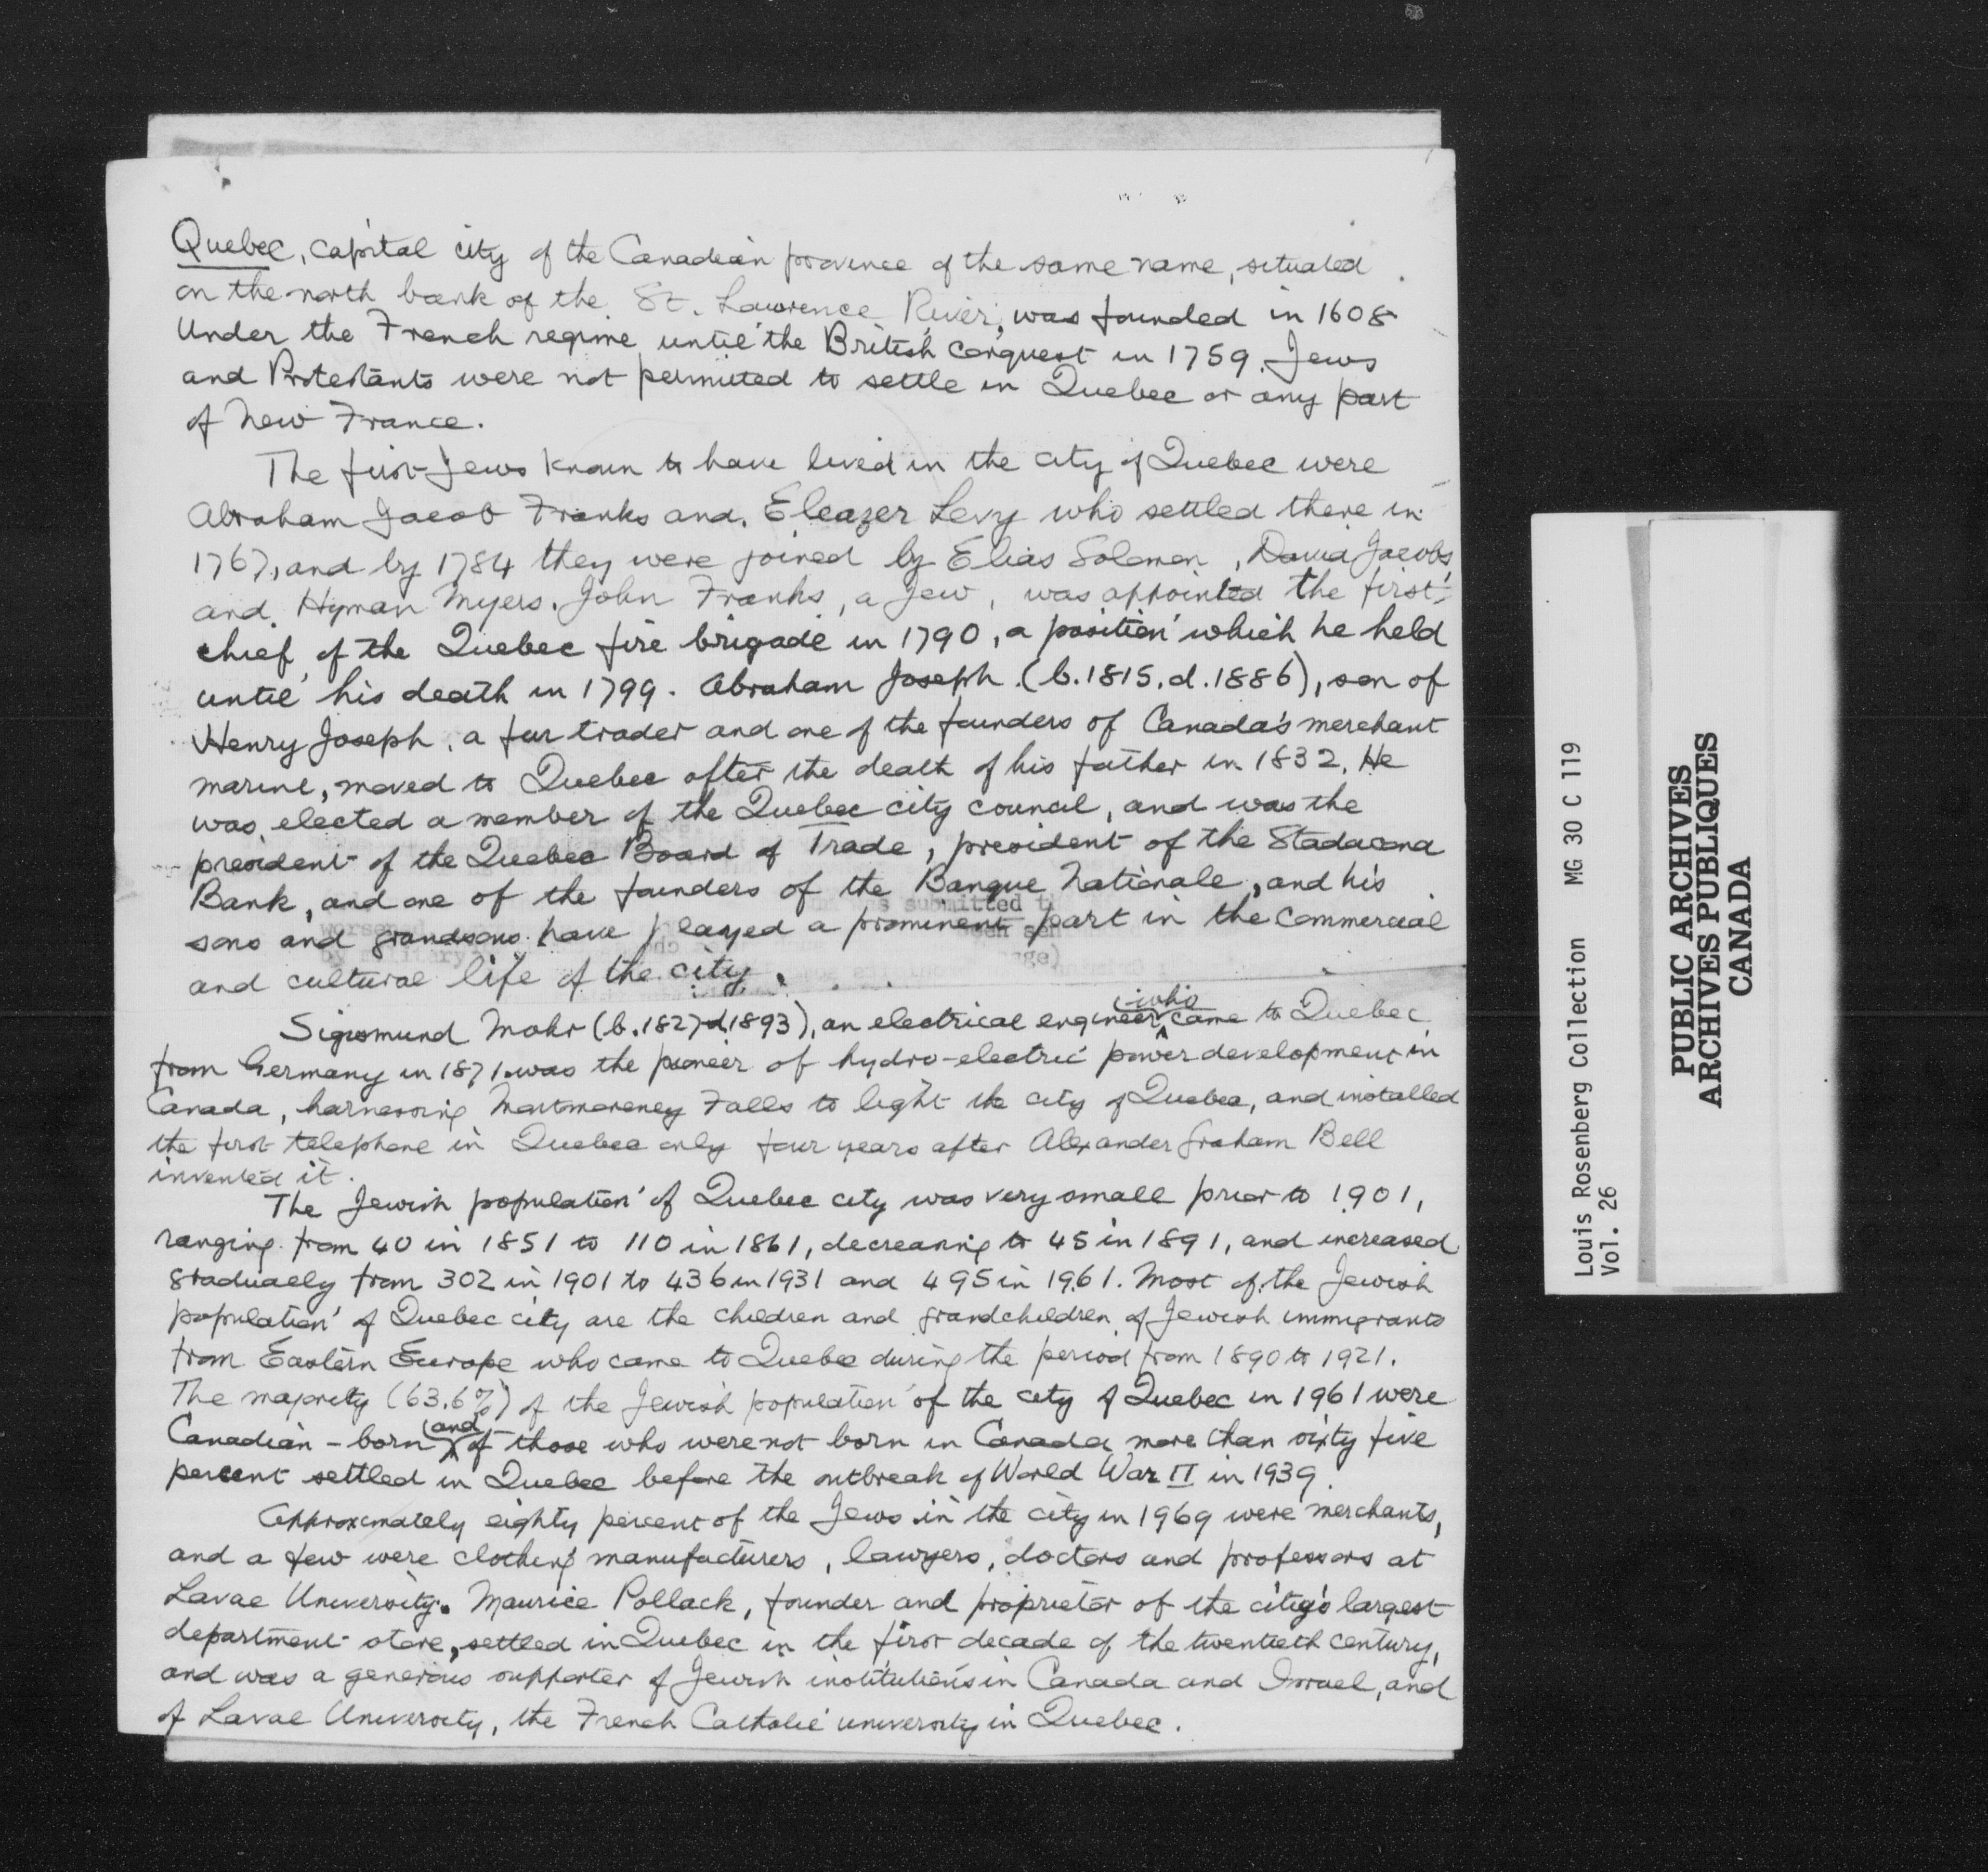 Quebec, capital city of the Canadian province of the same name, situated
on the north bank of the St. Lawrence River, was founded in 1608
Under the French regime until the British conquest in 1759. Jews
and Protestants were not permitted to settle in Quebec or any part
of New France.
The first Jews known to have lived in the city of Quebec were
Abraham Jacob Franks and Eleazer Levy who settled there in
1767, and by 1784 they were joined by Elias Solomon, David Jacobs
and Hyman Myers. John Franks, a Jew, was appointed the first
chief of the Quebec fire brigade in 1790, a position which he held
until his death in 1799. Abraham Joseph (b.1815. d.1886), son of
Henry Joseph, a fur trader and one of the founders of Canada's merchant
marine, moved to Quebec after the death of his father in 1832. He
was elected a member of the Quebec city council, and was the
president of the Quebec Board of Trade, president of the Stadacona
Bank, and one of the founders of the Banque Nationale, and his
sons and grandsons have played a prominent part in the commercial
and cultural life of the city.
Sigismund Mohr (b.1827 d.1893), an electrical engineer who came to Quebec
from Germany in 1871 was the pioneer of hydro-electric power development in
Canada, harnessing Montmoreney Falls to light the city of Quebec, and installed
the first telephone in Quebec only four years after Alexander Graham Bell
invented it.
The Jewish population of Quebec city was very small prior to 1901,
ranging from 40 in 1851 to 110 in 1861, decreasing to 45 in 1891, and increased
gradually from 302 in 1901 to 436 in 1931 and 495 in 1961. Most of the Jewish
population of Quebec city are the children and grandchildren of Jewish immigrants
from Eastern Europe who came to Quebec during the period from 1890 to 1921.
The majority (63.6%) of the Jewish population of the city of Quebec in 1961 were
Canadian-born and of those who were not born in Canada more than sixty five
percent settled in Quebec before the outbreak of World War II in 1939.
Approximately eighty percent of the Jews in the city in 1969 were merchants,
and a few were clothing manufacturers, lawyers, doctors and professors at
Laval University. Maurice Pollack, founder and proprietor of the city's largest
department store, settled in Quebec in the first decade of the twentieth century,
and was a generous supporter of Jewish institutions in Canada and Israel, and
of Laval University, the French Catholic university in Quebec.
Louis Rosenberg Collection MG 30 C 119
Vol. 26
PUBLIC ARCHIVES
ARCHIVES PUBLIQUES
CANADA